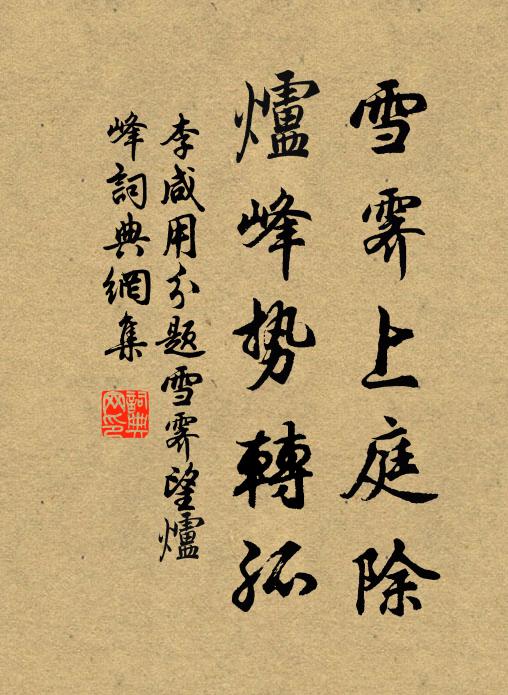 雪霽上庭除
爐峰勢轉孤
李咸用分題雪霽望爐
峰詞典網集
詞典網印